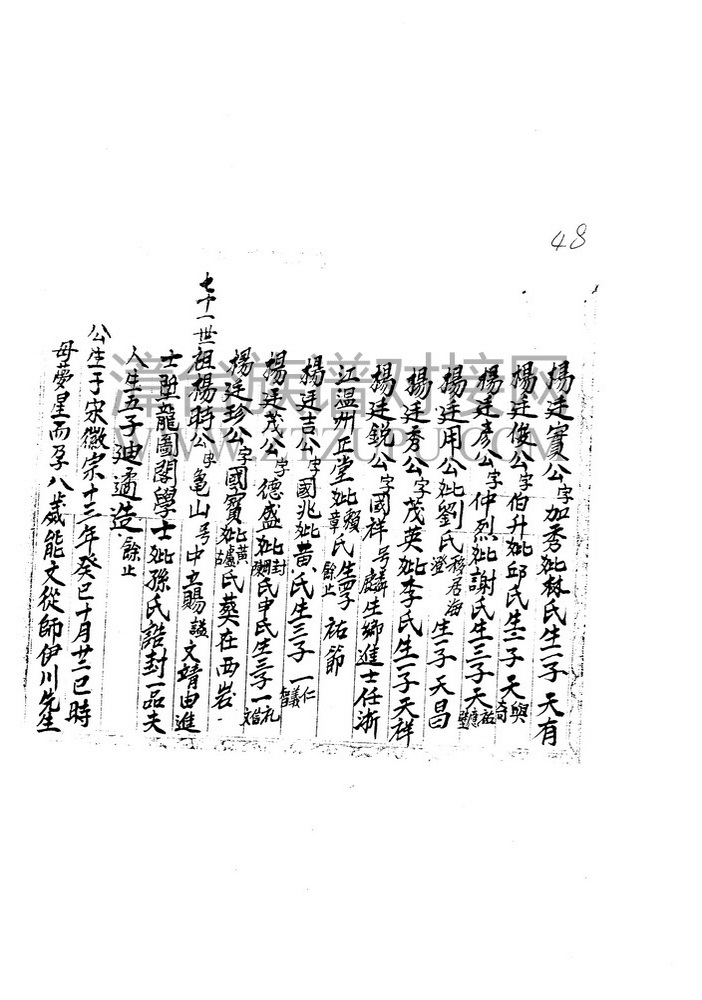 48
楊廷實公字加秀妣林氏生一子天有
楊廷俊公字伯升妣邱氏生二子天與
楊廷彥公字仲烈妣謝氏生三子天祐
楊廷用公妣劉氏移居海澄生一子天昌
楊廷秀公字茂英妣李氏生一子天祥
楊廷銳公字國祥号麟生鄉進士任浙
江温州正堂妣賴章氏生子祐節餘止
楊廷吉公字國兆妣黄氏生三子一仁義智
楊廷茂公字德盛妣封氏申氏生三子一礼文
楊廷珍公字國寶妣黄盧氏葬在西岩
七十一世祖楊時公字亀山号中立賜謚文靖由進
士陞龍圖閣學士妣孫氏誥封一品夫
人生五子廸遹造餘止
公生于宋徽宗十三年癸巳十月廿二巳時
母夢星而孕八歲能文從師伊川先生
漳台族谱对接网
WWW.ZTZUPU.COM